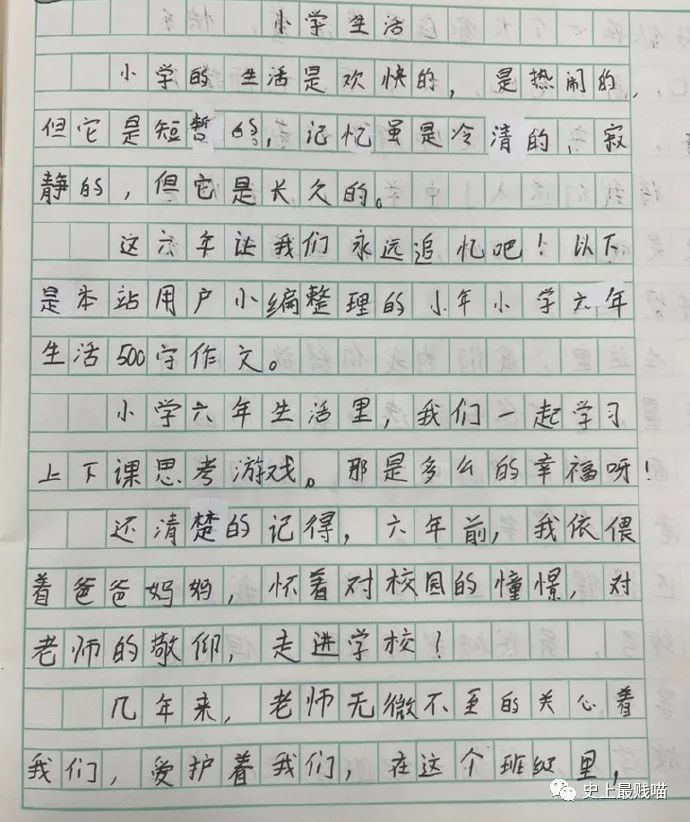 小学生活
小学的生活是欢快的，是热闹的，
但它是短暂的，记忆虽是冷清的，寂
静的，但它是长久的。
这六年让我们永远追忆吧！以下
是本站用户小编整理的小年小学六年
生活500字作文。
小学六年生活里，我们一起学习
上下课思考游戏。那是多么的幸福呀！
还清楚的记得，六年前，我依偎
着爸爸妈妈，怀着对校园的憧憬，对
老师的敬仰，走进学校！
几年来，老师无微不至的关心着
我们，爱护着我们，在这个班级里，
史上最贱喵